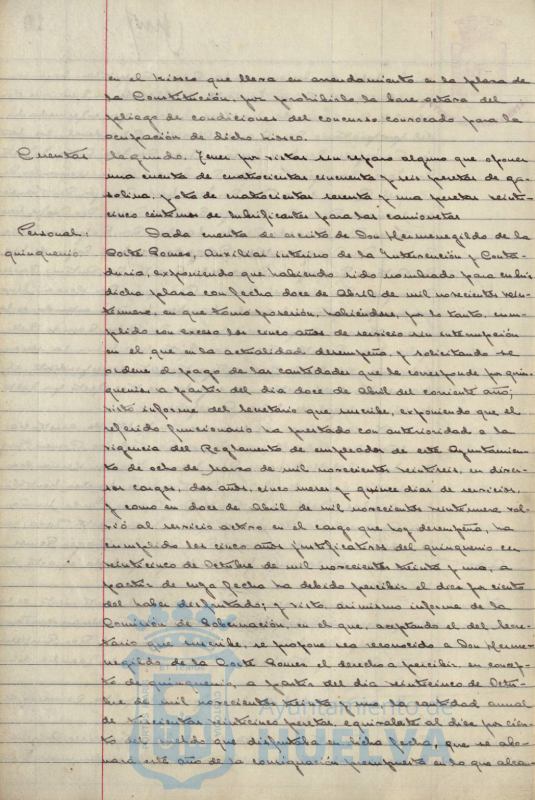 en el kiosco que lleva en arrendamiento en la plaza de
la Constitución, por prohibirlo la base octava del
pliego de condiciones del concurso convocado para la
ocupación de dicho kiosco.
Cuentas Segundo. Tener por vistas sin reparo alguno que oponer
una cuenta de cuatrocientas cincuenta y seis pesetas de ga-
solina, y otra de cuatrocientas sesenta y una pesetas veinti-
cinco céntimos de lubrificantes para las camionetas
Personal: Dada cuenta de escrito de Don Hermenegildo de la
quinquenio. Corte Gomez, Auxiliar interino de la Intervención y Conta-
duría, exponiendo que habiendo sido nombrado para cubrir
dicha plaza con fecha doce de Abril de mil novecientos vein-
tinueve, en que tomó posesión, habiéndose, por lo tanto, cum-
plido con exceso los cinco años de servicio sin interrupción
en el que en la actualidad desempeña, y solicitando se
ordene el pago de las cantidades que le corresponde por quin-
quenio, a partir del dia doce de Abril del corriente año;
visto informe del Secretario que suscribe, exponiendo que el
referido funcionario ha prestado con anterioridad a la
vigencia del Reglamento de empleados de este Ayuntamien-
to de ocho de marzo de mil novecientos veintiseis, en diver-
sos cargos, dos años, cinco meses y quince dias de servicios,
y como en doce de Abril de mil novecientos veintinueve vol-
vió al servicio activo en el cargo que hoy desempeña, ha
cumplido los cinco años justificativos del quinquenio en
veinticinco de Octubre de mil novecientos treinta y uno, a
partir de cuya fecha ha debido percibir el diez por ciento
del haber disfrutado; y visto, asimismo informe de la
Comisión de Gobernación en el que, aceptando el del Secre-
tario que suscribe, se propone sea reconocido a Don Herme-
negildo de la Corte Gomez el derecho a percibir, en concep-
to de quinquenio, a partir del dia veinticinco de Octu-
bre de mil novecientos treinta y uno la cantidad anual
de trescientas veinticinco pesetas, equivalente al diez por cien-
to del sueldo que disfrutaba en dicha fecha, que se abo-
nará este año de la consignación presupuesta en lo que alcan-
Ayuntamiento de
HUELVA